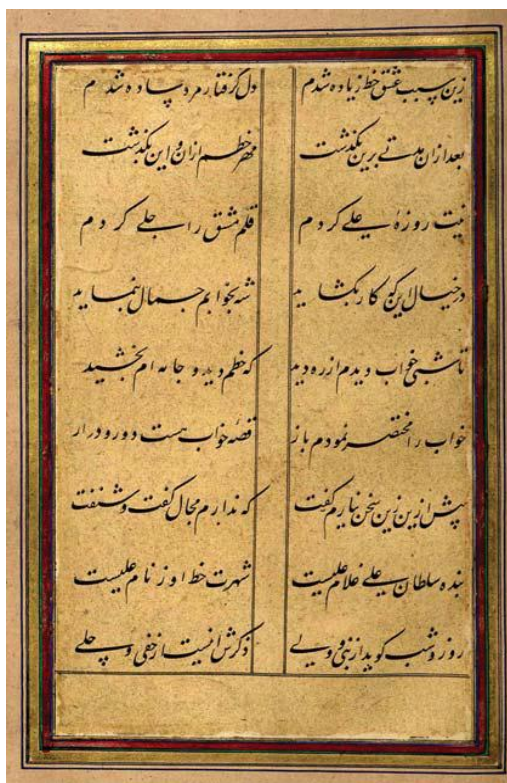 زین سبب عشق خط زیاده شدم دل گرفتار مرد ساده شدم
بعد ازان مدتی برین بگذشت مهر خطم ازان و این بگذشت
نیت روزهٔ علی کردم قلم مشق را جلی کردم
در خیال این که کار بگشاید شه بخوابم جمال بنماید
تا شبی خواب دیدم از ره دید که خطم دید و جامه ام بخشید
خواب را مختصر نمودم باز قصهٔ خواب هست دور و دراز
پیش ازین زین سخن نیارم گفت که ندارم مجال گفت و شنفت
بنده سلطان علی غلام علیست شهرت خط او ز نام علیست
روز و شب گوید از نبی و ولی ذکرش اینست از خفی و جلی